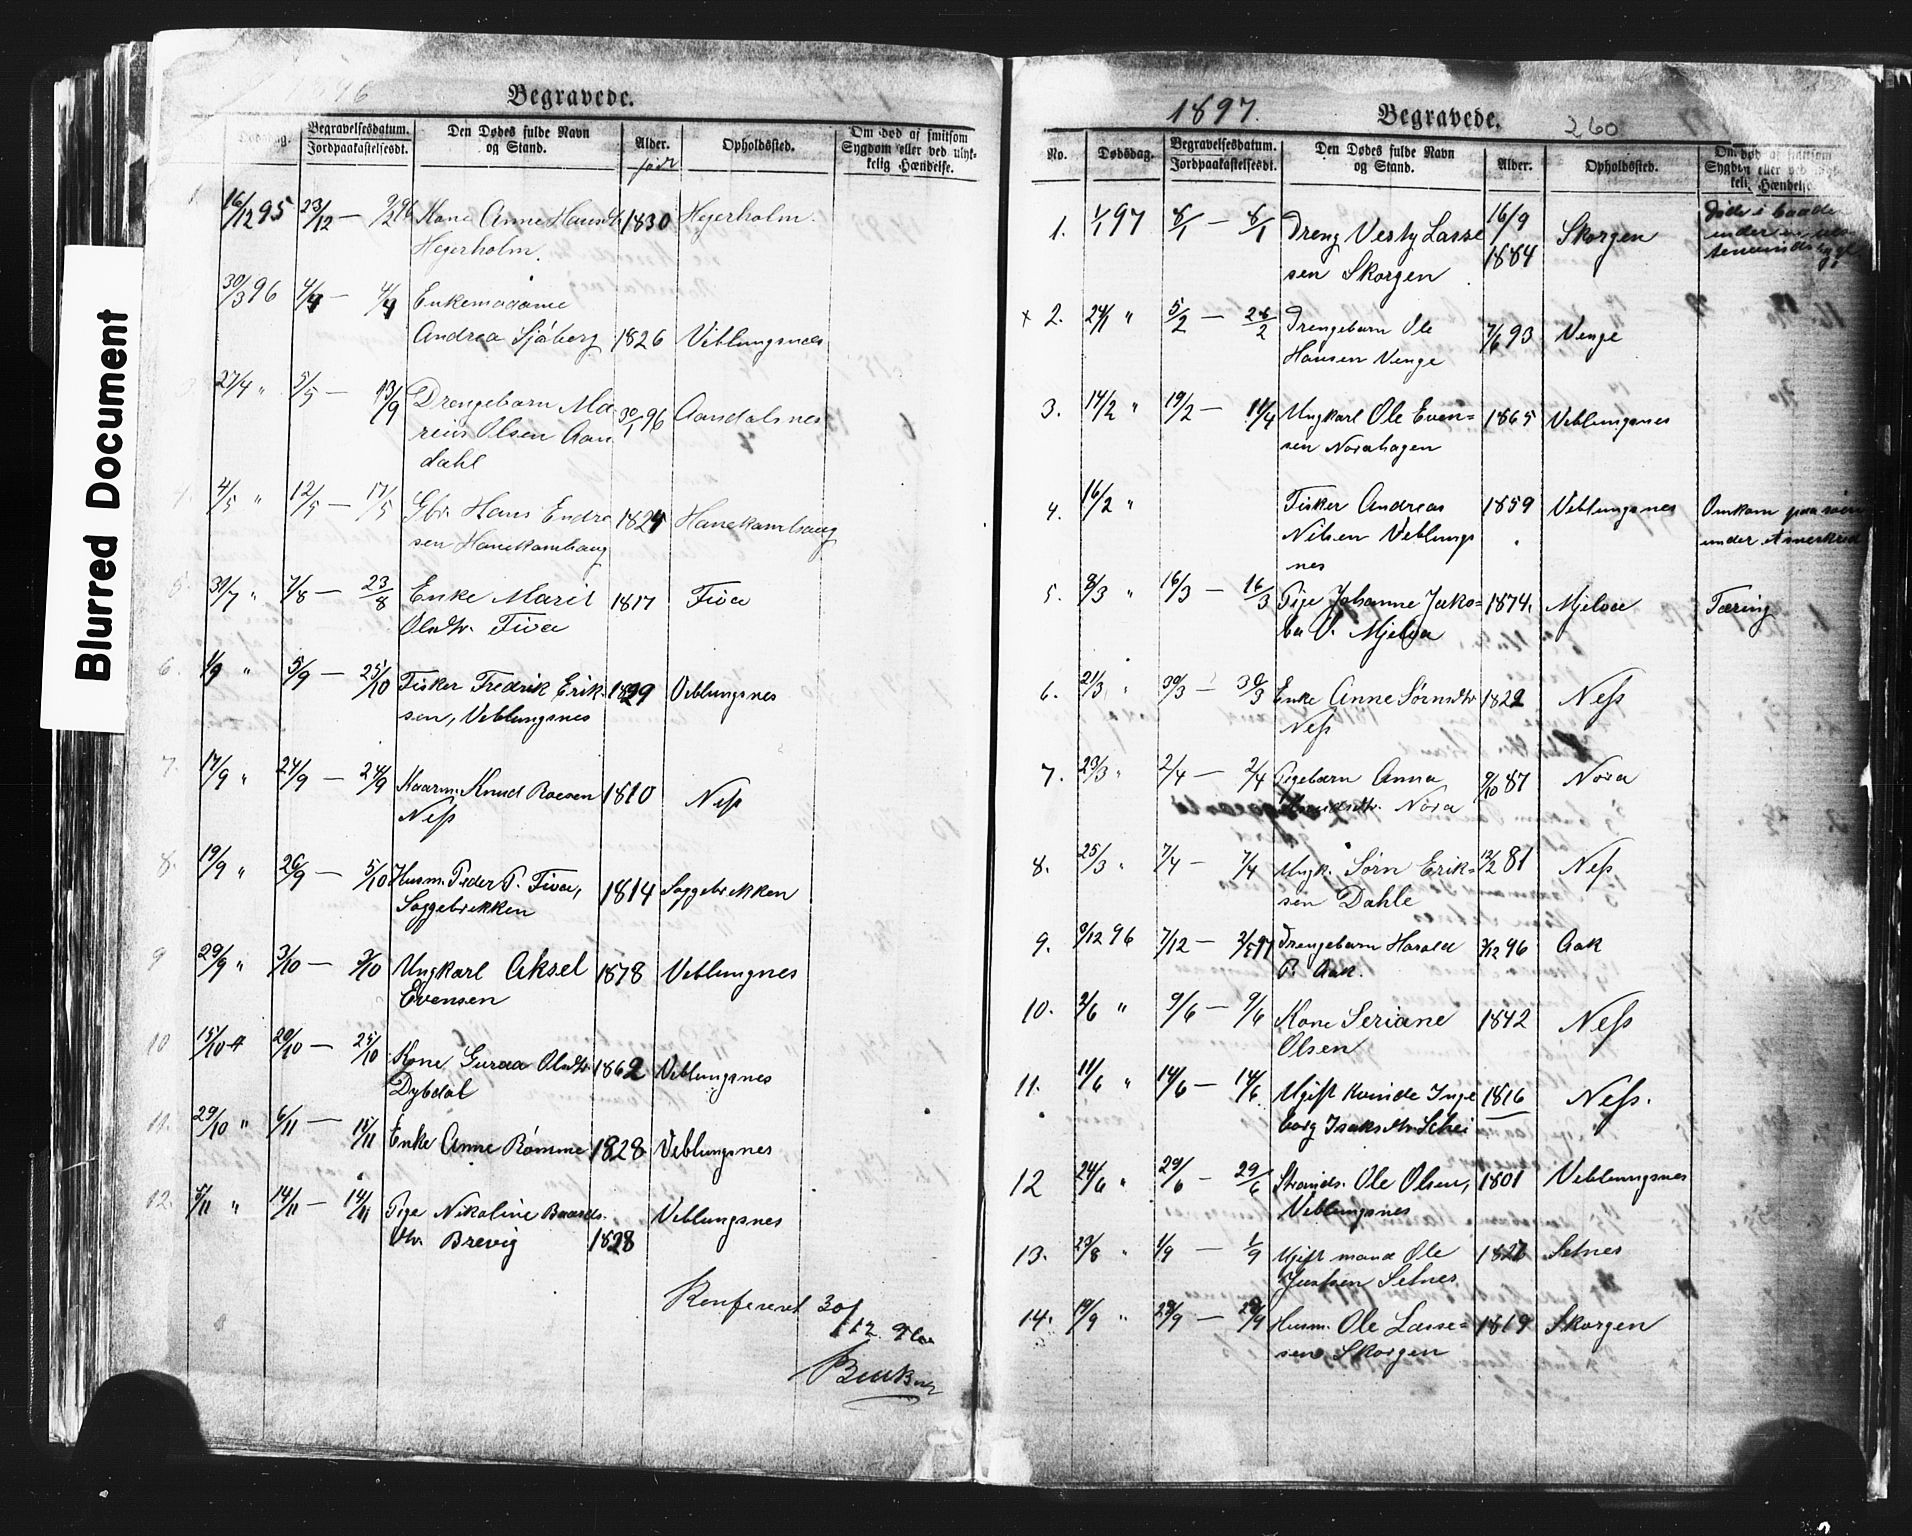 Blurred Document
Begravede.
Dødsdag.
Begravelsesdatum.
Jordpaakastelsesdt.
Den Dødes fulde Navn
og Stand.
Alder.
født
Opholdssted.
Om død af smitsom
Sygdom eller ved ulyk-
kelig Hændelse.
16/12 95 23/12 — 9/2 96 Kone Anne Hansdtr 1830 Hejerholm.
Hejerholm.
30/3 96 4/4 — 4/4 Enkemadame
Andrea Sjöberg 1826 Veblungsnes
27/4 " 5/5 — 13/9 Drengebarn Ma
rius Olsen Aan 30/1 96 Aandalsnes
dahl
4. 4/5 " 12/5 — 17/5 Gbr. Hans Endre 1824 Hanekamhaug
sen Hanekamhaug
5. 31/7 " 7/8 — 23/8 Enke Marit 1817 Fiva
Olsdtr. Fiva
6. 1/9 " 5/9 — 25/10 Fisker Fredrik Erik 1829 Veblungsnes
sen, Veblungsnes
7. 17/9 " 24/9 — 24/9 Kaarm. Knud Roesen 1810 Neſs
Neſs
8. 19/9 " 26/9 — 5/10 Husm. Peder P. Fiva, 1814 Soggebrekken
Soggebrekken
9 29/9 " 3/10 — 3/10 Ungkarl Aksel 1878 Veblungnes
Evensen
10 15/10 " 20/10 — 25/10 Kone Guraa Olsdtr 1862 Veblungsnes
Dybdal
11. 29/10 " 6/11 — 15/11 Enke Anne Rømme 1828 Veblungsnes
12. 5/11 " 14/11 — 14/11 Pige Nikoline Baards. Veblungsnes
dtr. Brevig 1828
Konfereret 30/
/12 96
1897.
Begravede.
260
No.
Dødsdag.
Begravelsesdatum.
Jordpaakastelsesdt.
Den Dødes fulde Navn
og Stand.
Alder.
Opholdssted.
Om død af smitsom
Sygdom eller ved ulyk-
kelig Hændelse
1. 1/1 97 8/1 — 8/1 Dreng Vesty Lasse 16/9 Skorgen
sen Skorgen 1884
x 2. 24/1 " 5/2 — 28/2 Drengebarn Ole 7/6 93 Venge
Hansen Venge
3. 14/2 " 19/2 — 11/4 Ungkarl Ole Even= 1865 Veblungsnes
sen Norahagen
4. 16/2 " Fisker Andreas 1859 Veblungsnes Omkom paa søen
Nilsen Veblungs
nes
5. 8/3 " 16/3 — 16/3 Pige Johanne Jako= 1874. Mjelva Tæring
ba O. Mjelva
6. 21/3 " 30/3 — 30/3 Enke Anne Sørnsdtr 1822 Neſs
Neſs
7. 23/3 " 2/4 — 2/4 Pigebarn Anna 9/10 87 Nora
Nora
8. 25/3 " 7/4 — 7/4 Ungk. Sørn Erik= 12/2 81 Neſs
sen Dahle
9. 9/12 96 7/12 — 2/5 97 Drengebarn Harald 3/12 96 Aak
P. Aak.
10. 2/6 " 9/6 — 9/6 Kone Seriane 1842 Neſs
Olsen
11. 11/6 " 14/6 — 14/6 Ugift Kvinde Inge 1816 Neſs.
borg Isaksdtr Schei
12 24/6 " 29/6 — 29/6 Strands. Ole Olsen, 1801 Veblungsnes
Veblungsnes
13. 29/8 " 1/9 — 1/9 Ugift mand Ole 1827 Setnes
Setnes
14. 19/9 " 28/9 — 28/9 Husm. Ole Lasse= 1819 Skorgen
sen Skorgen